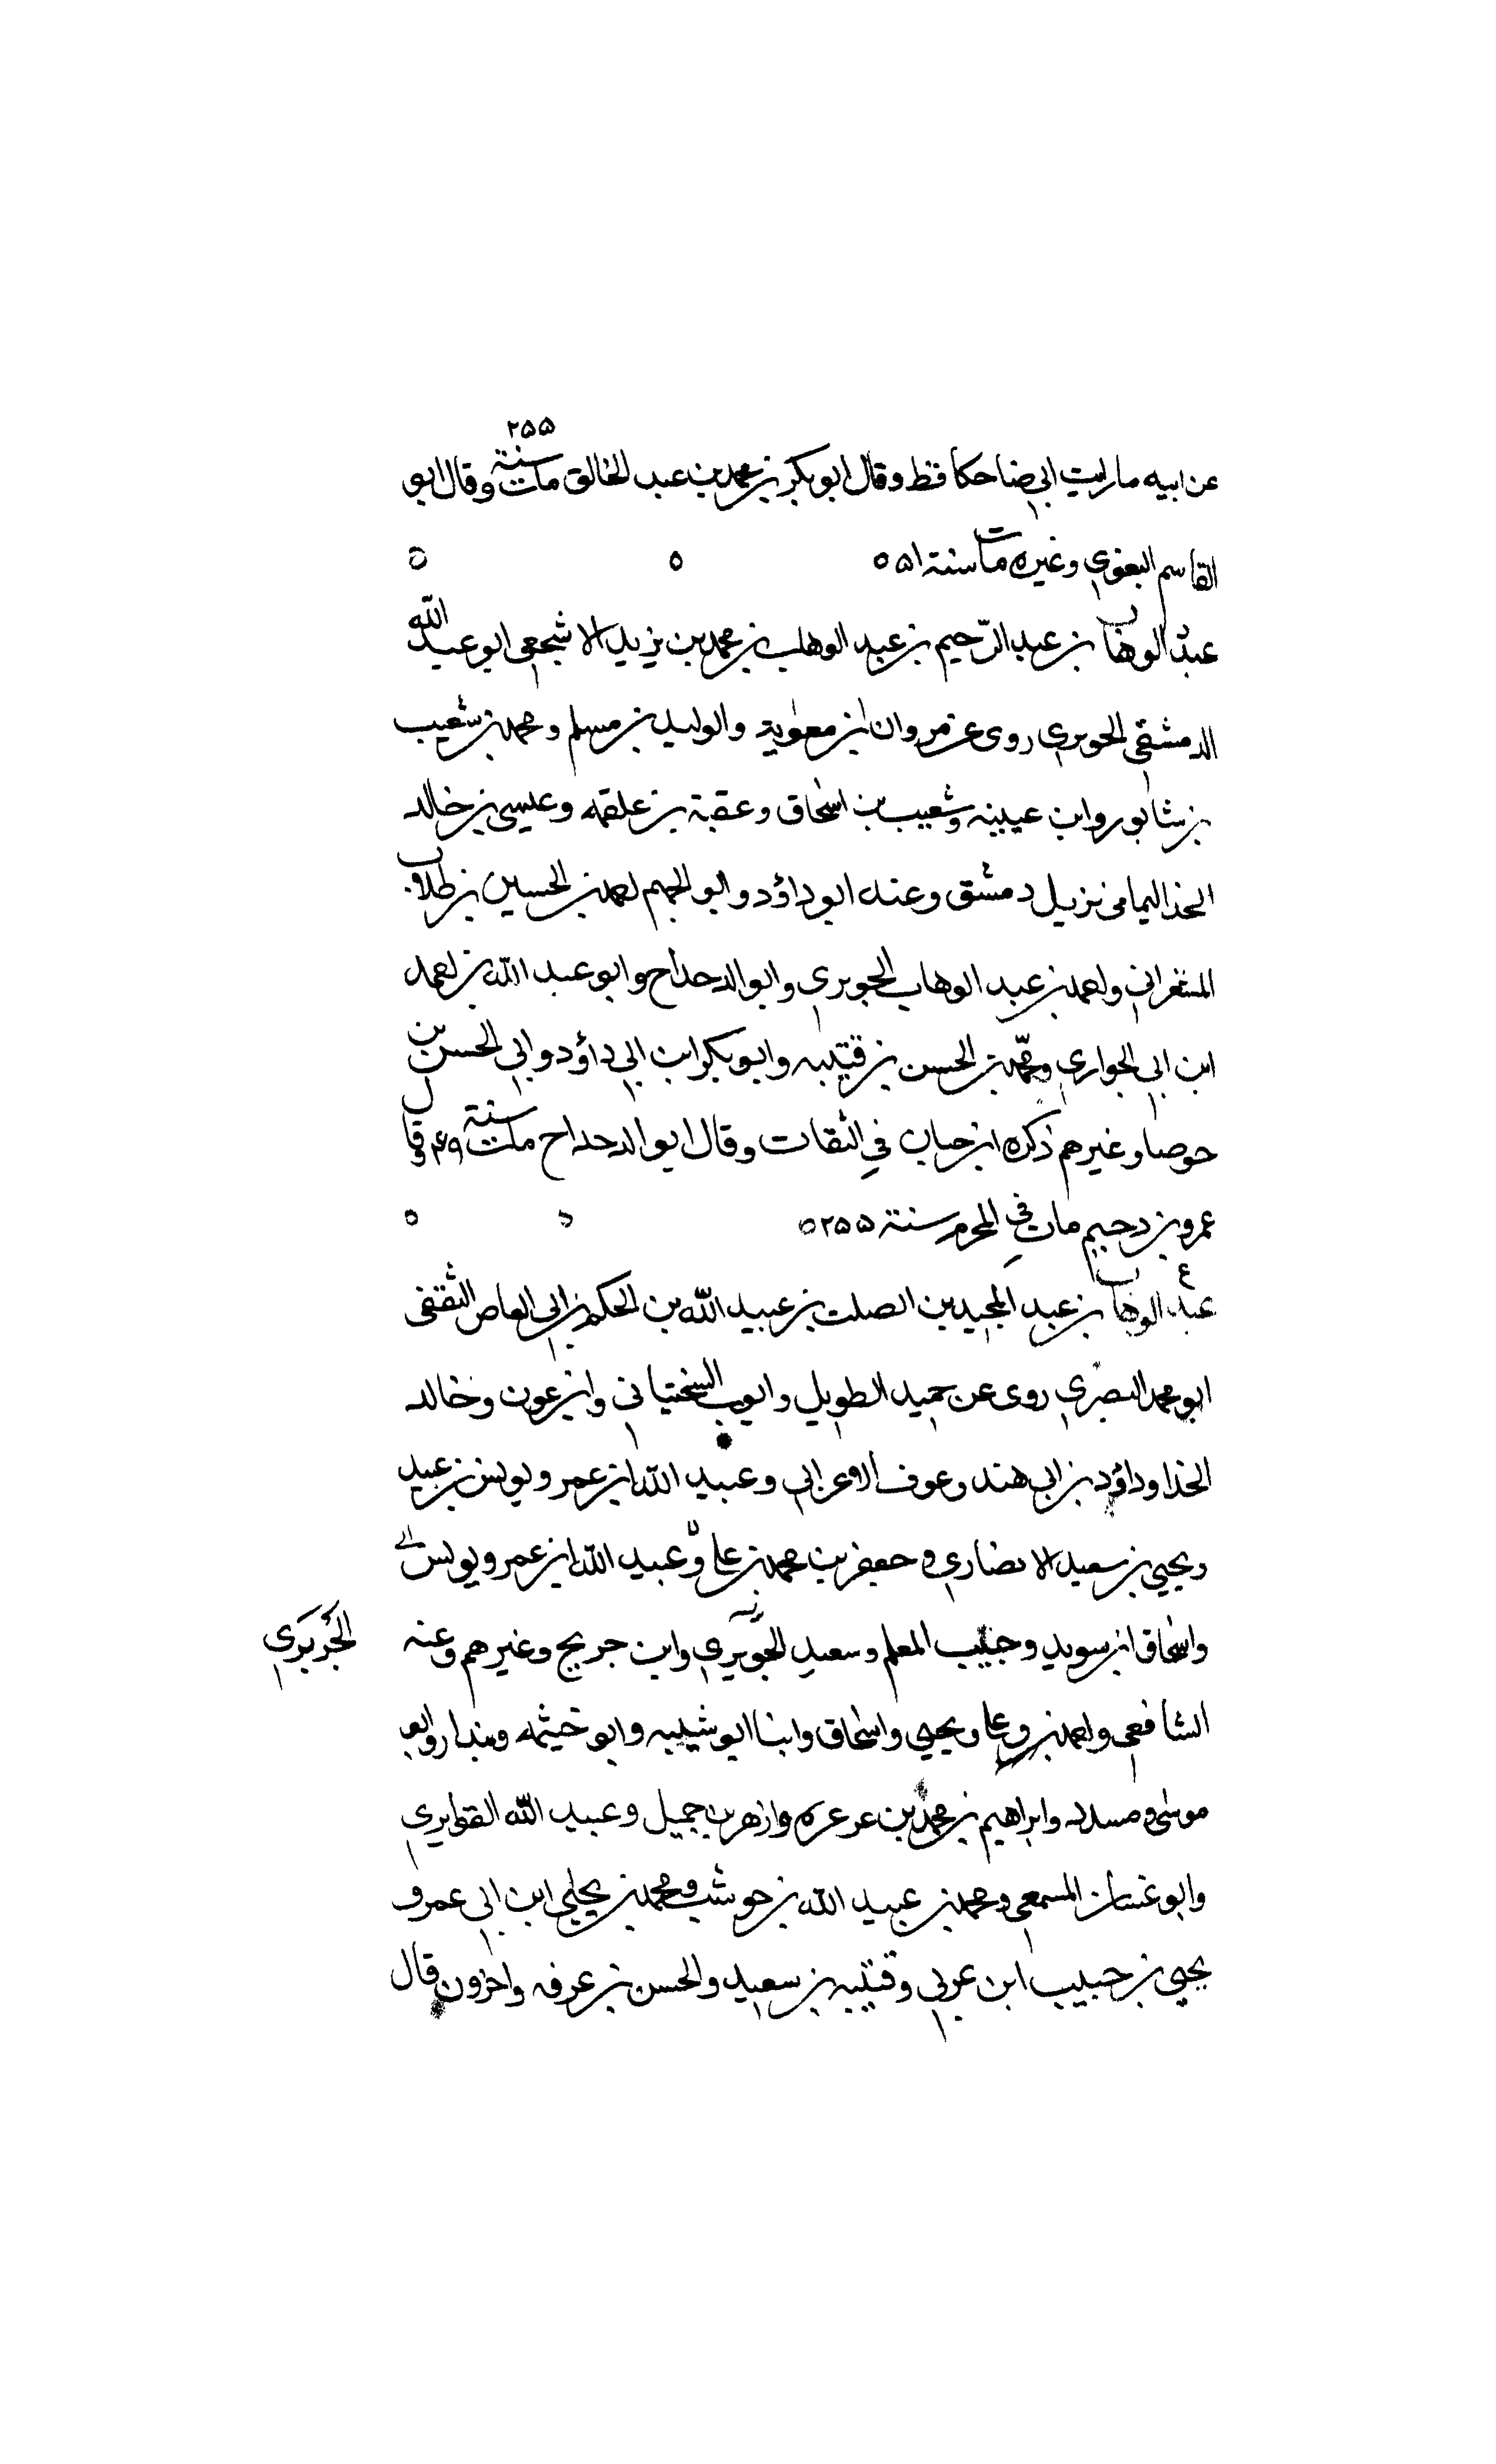 عن ابيه ما رايت ابي ضاحكا قط وقال ابو بكر بن محمد بن عبد الخالق مات سنة ٢٥٥ وقال ابو
القاسم البغوي وغيره مات سنة ٥١ ه ه ه
عبد الوهاب بن عبد الرّحيم بن عبد الوهاب بن محمد بن يزيد الاشجعي ابو عبد اللّه
الدمشقي الجوبري روى عن مروان ابن معوية والوليد بن مسلم ومحمد بن شعيب
بن شابور وابن عيينه وشعيب بن اسحاق وعقبة بن علقمه وعيسى بن خالد
اليمامى نزيل دمشق وعنه ابو داؤد وابو الجهم احمد بن الحسين بن طلاب
المشغراني واحمد بن عبد الوهاب الجوبري وابو الدحداح وابو عبد اللّه بن احمد
ابن ابي الحواري ومحمّد بن الحسن بن قتيبه وابو بكر ابن ابي داؤد وابي الحسن بن
حوصا وغيرهم ذكره ابن حبان في الثقات وقال ابو الدحداح مات سنة ٢٤٩ وقال
عمرو بن دحيم مات في المحرم سنة ٢٥٥ ه ه ه
ع عبد الوهاب بن عبد المجيد بن الصلت بن عبيد اللّه بن الحكم بن ابي العاص الثقفى
ابو محمد البصري روى عن حميد الطويل وايوب السختياني وابن عون وخالد
الحذا وداؤد بن ابي هند وعوف الاعرابي وعبيد اللّه ابن عمر ويونس بن عبيد
ويحيى بن سعيد الانصاري وجعفر بن محمد بن علي وعبيد اللّه ابن عمر ويونس
واسحاق ابن سويد وحبيب المعلم وسعيد الجريري وابن جريج وغيرهم وعنه الجُرَيرَي
الشافعى واحمد بن وعلي ويحيى واسحاق وابنا ابو شيبه وابو خيثمه وبندار وابو
موسى ومسدد وابراهيم بن محمد بن عرعره وازهر بن جميل وعبيد اللّه القواريري
وابو غسان المسمعي ومحمد بن عبيد اللّه بن حوشب ومحمد بن يحيى ابن ابى عمر و
يحيى بن حبيب ابن عربي وقتيبه بن سعيد والحسن بن عرفه واخرون قال